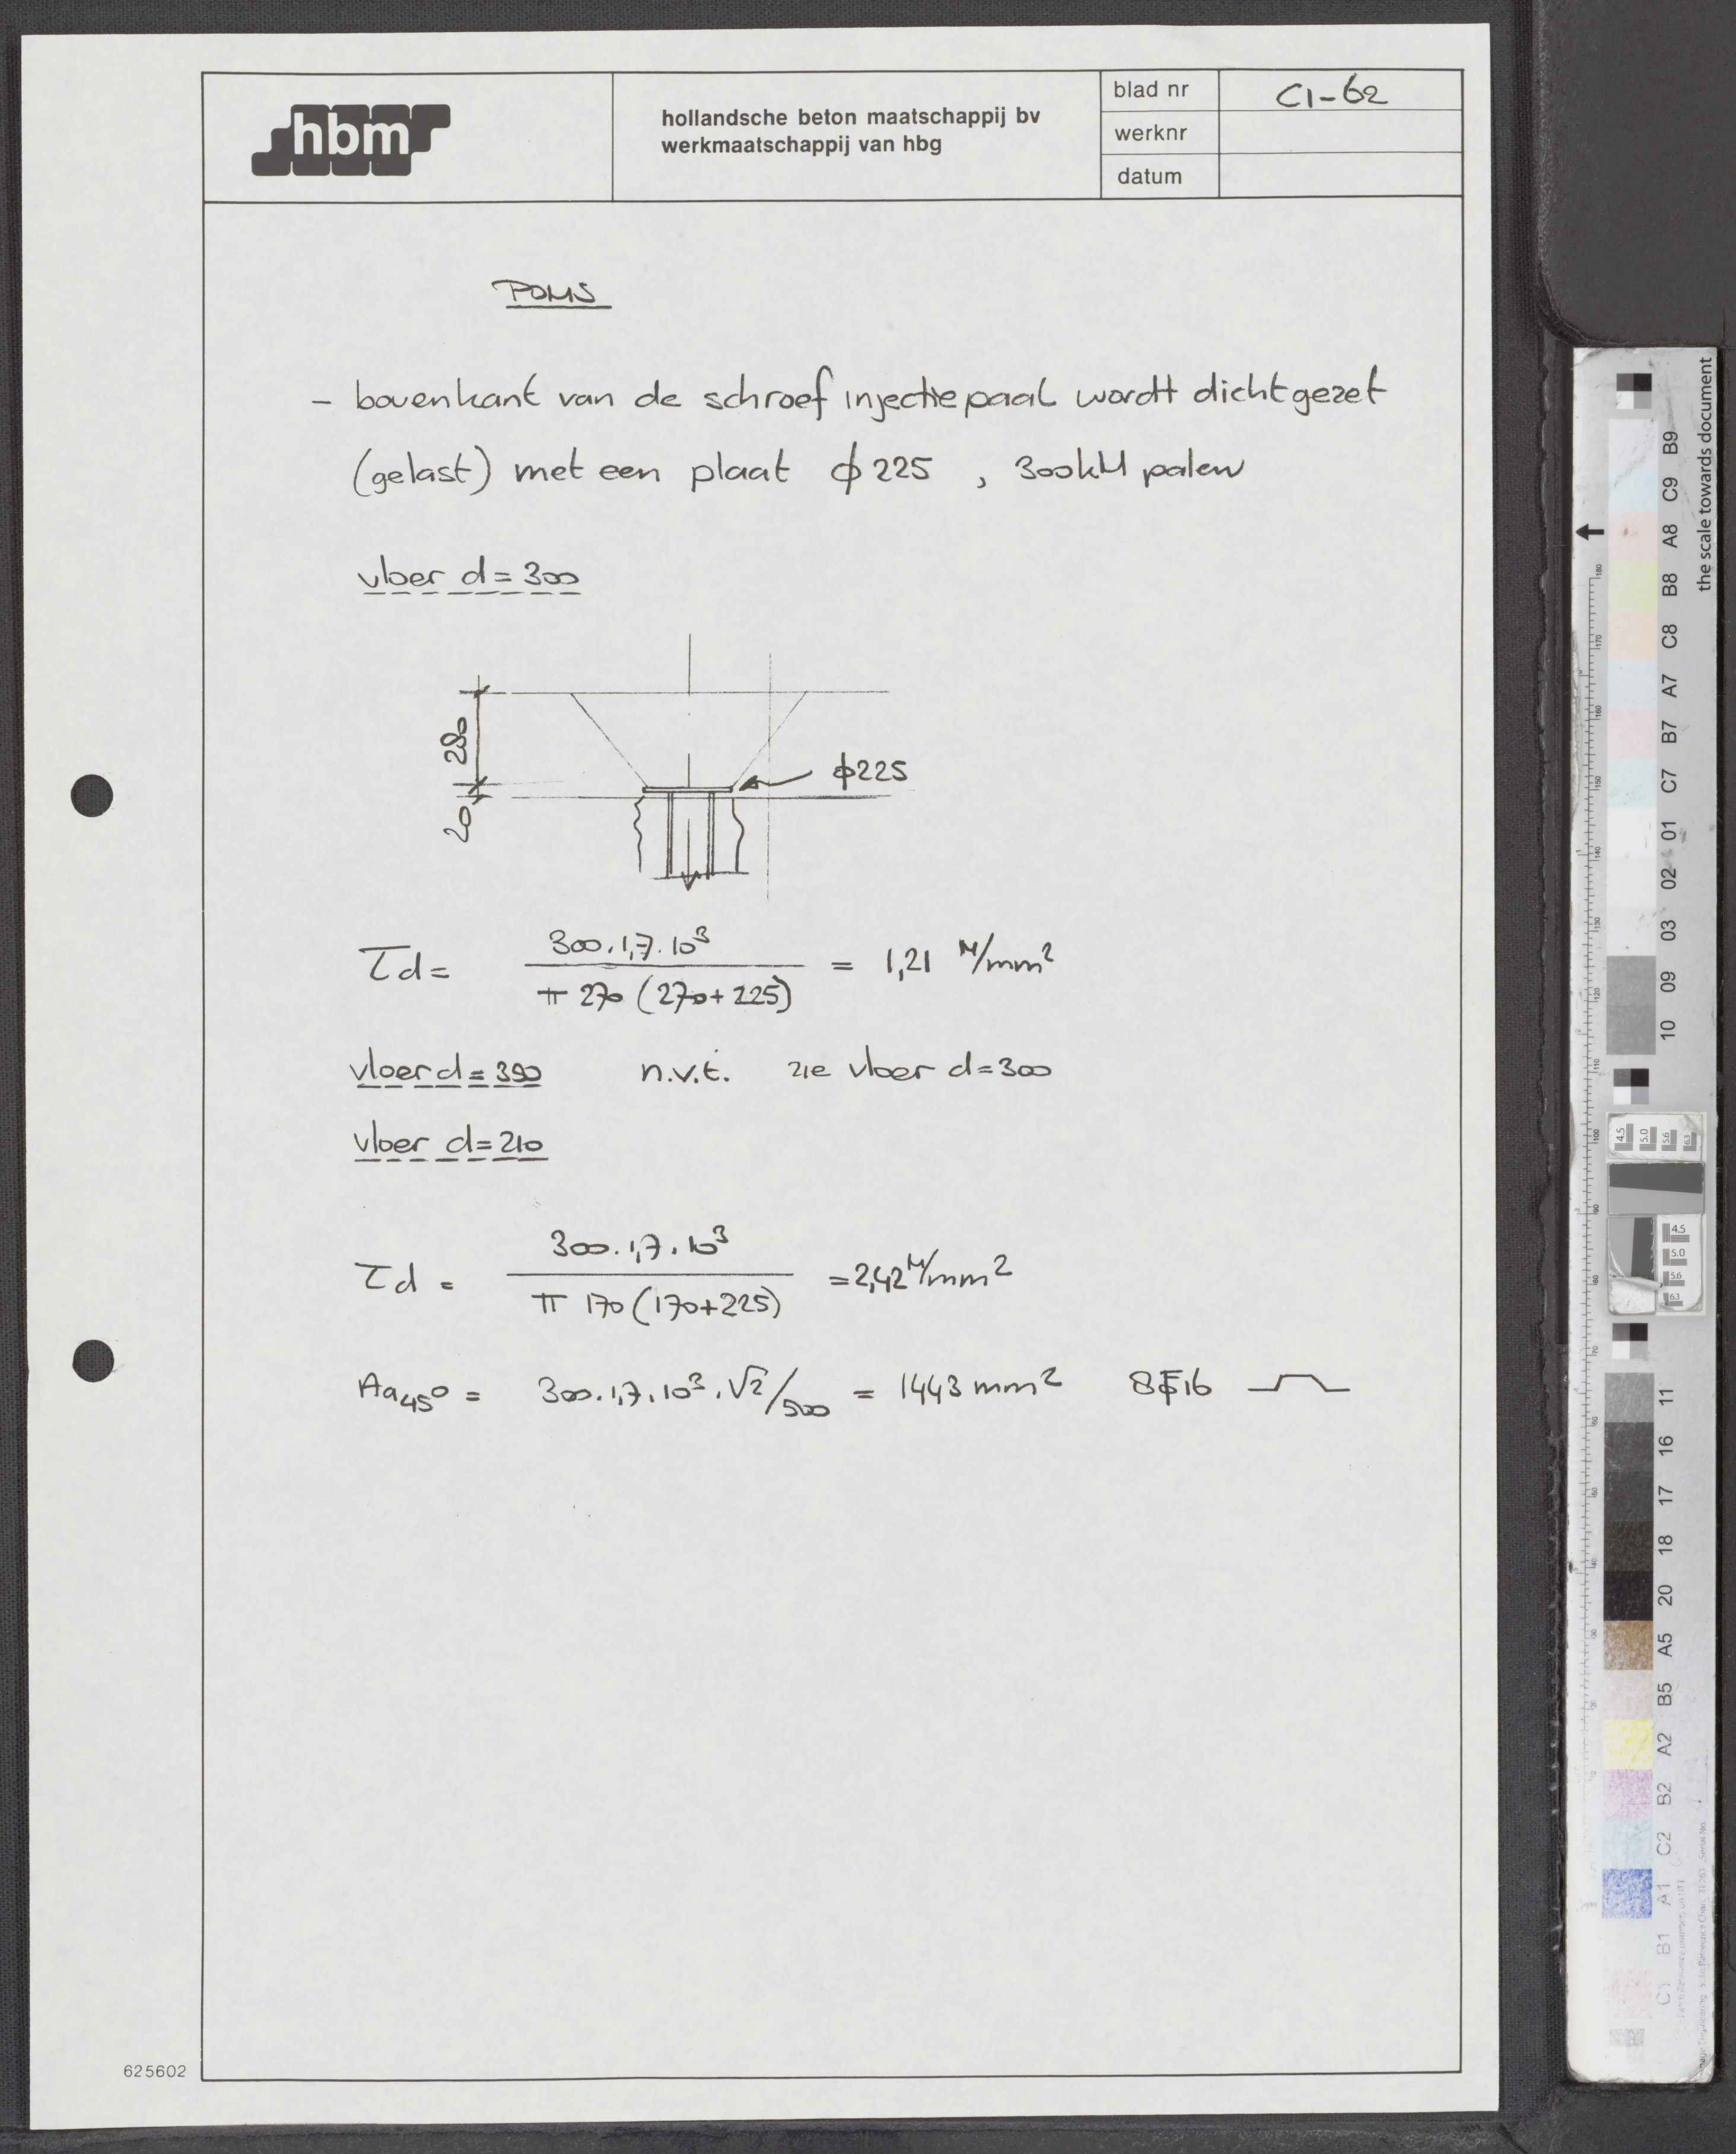 hbm
hollandsche beton maatschappij bv
werkmaatschappij van hbg
blad nr C1-62
werknr
datum
PONS
- bovenkant van de schroef injectiepaal wordt dichtgezet
(gelast) met een plaat ϕ225 , 300kN palen
vloer d=300
280
20
ϕ225
τd = 300.1,7.10³ / π 270 (270+225) = 1,21 N/mm²
vloer d=390 n.v.t. zie vloer d=300
vloer d=210
τd = 300.1,7.10³ / π 170 (170+225) = 2,42 N/mm²
Aa45° = 300.1,7.10³.√2/500 = 1443 mm² 8ϕ16
625602
the scale towards document
B9
C9
A8
B8
C8
A7
B7
C7
01
02
03
09
10
11
16
17
18
20
A5
B5
A2
B2
C2
A1
B1
C1
4.5
5.0
5.6
6.3
4.5
5.0
5.6
6.3